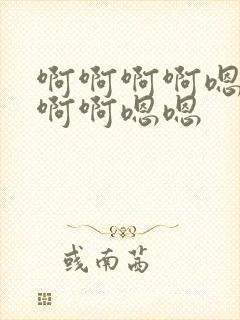 啊啊啊啊嗯
啊啊嗯嗯
彧南茜